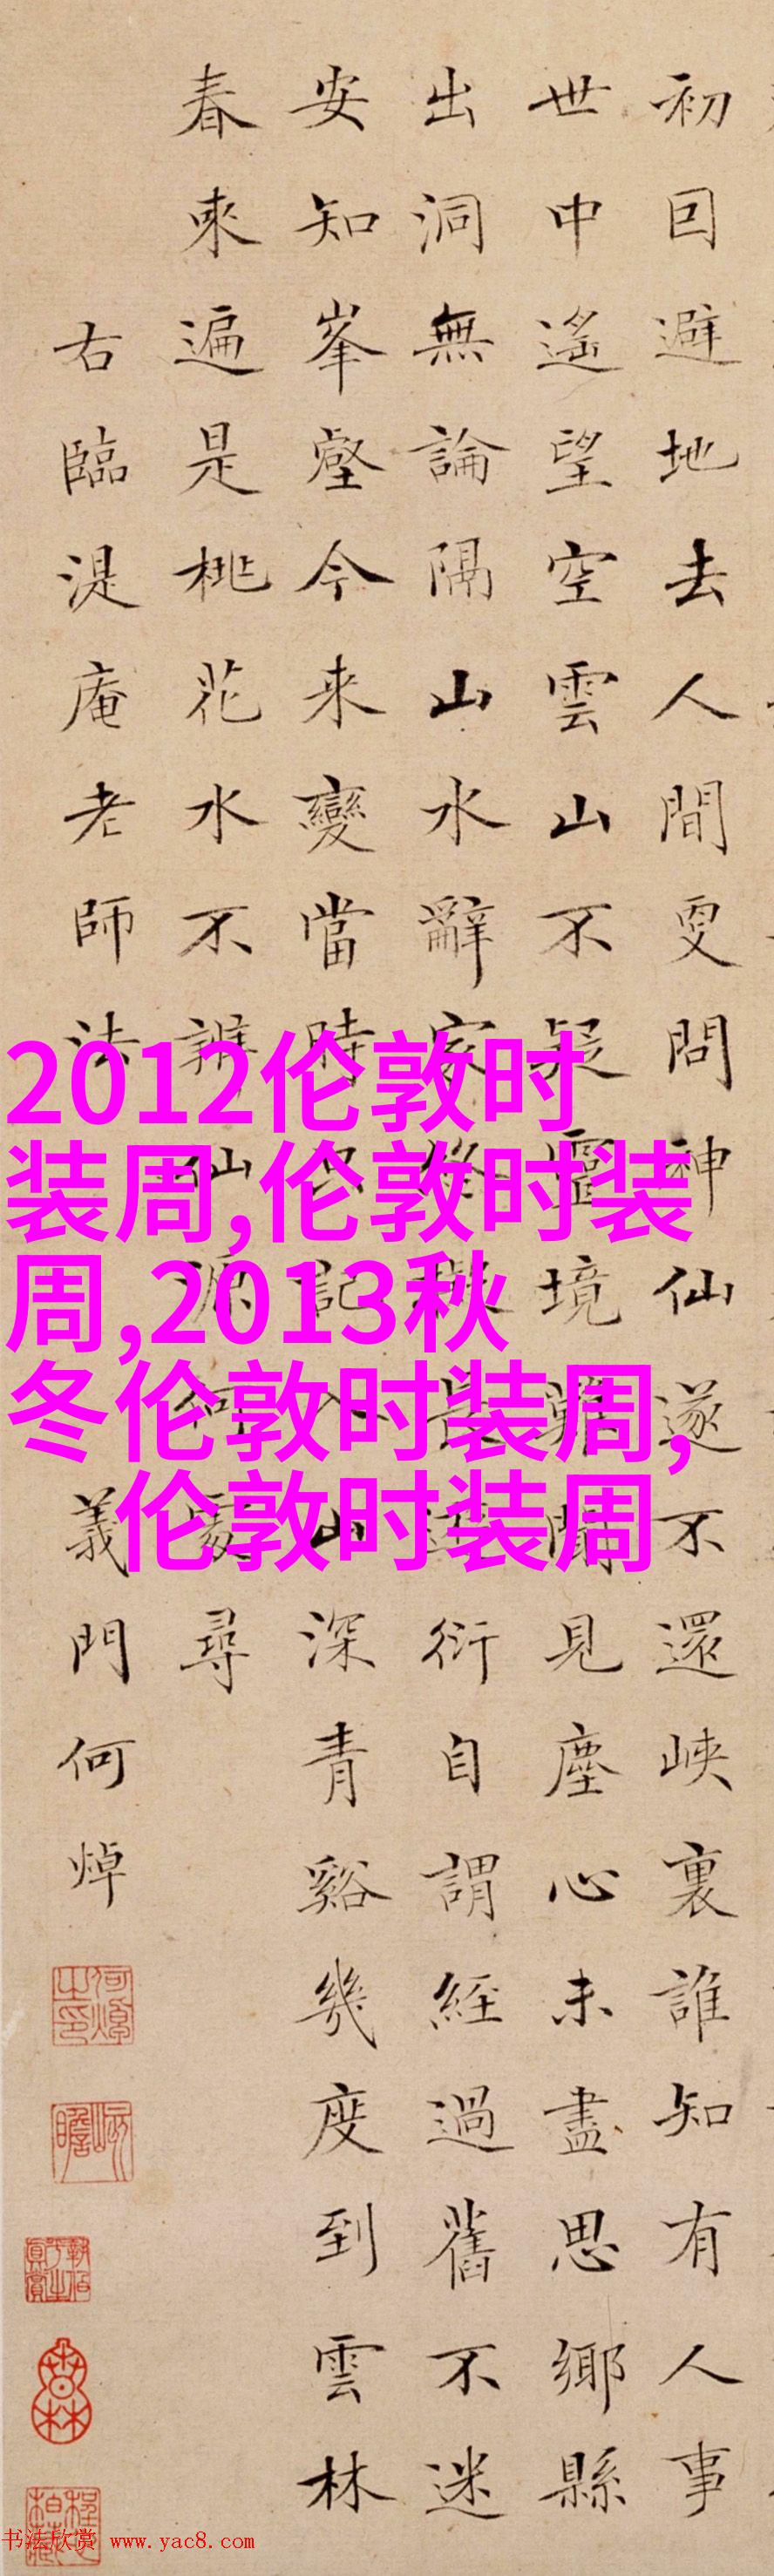 初囙避地去人間更問神仙遂不還峽裏誰知有人事
世中遙望空雲山不疑靈境難聞見塵心未盡思鄉縣
出洞無論隔山水辭家終擬長遊衍自謂經過舊不迷
安知峯壑今来變當時只記入山深青谿幾度到雲林
春來遍是桃花水不辨仙源何處尋
右臨湜庵老師法
義門何焯
何焯之印
屺瞻
2012伦敦时
装周,伦敦时装
周,2013秋
冬伦敦时装周,
伦敦时装周
书法欣赏 www.yac8.com